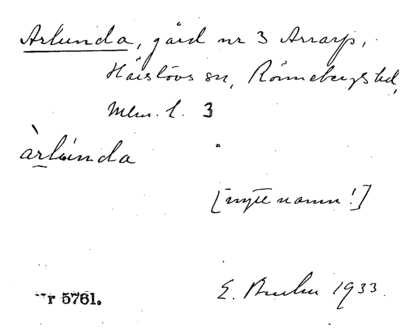 Arlunda, gård nr 3 Arrarp,
Härslövs sn, Rönnebergs hd,
Mlm. l. 3
àrlúnda
[nytt namn!]
r 5761.
E. 1933.